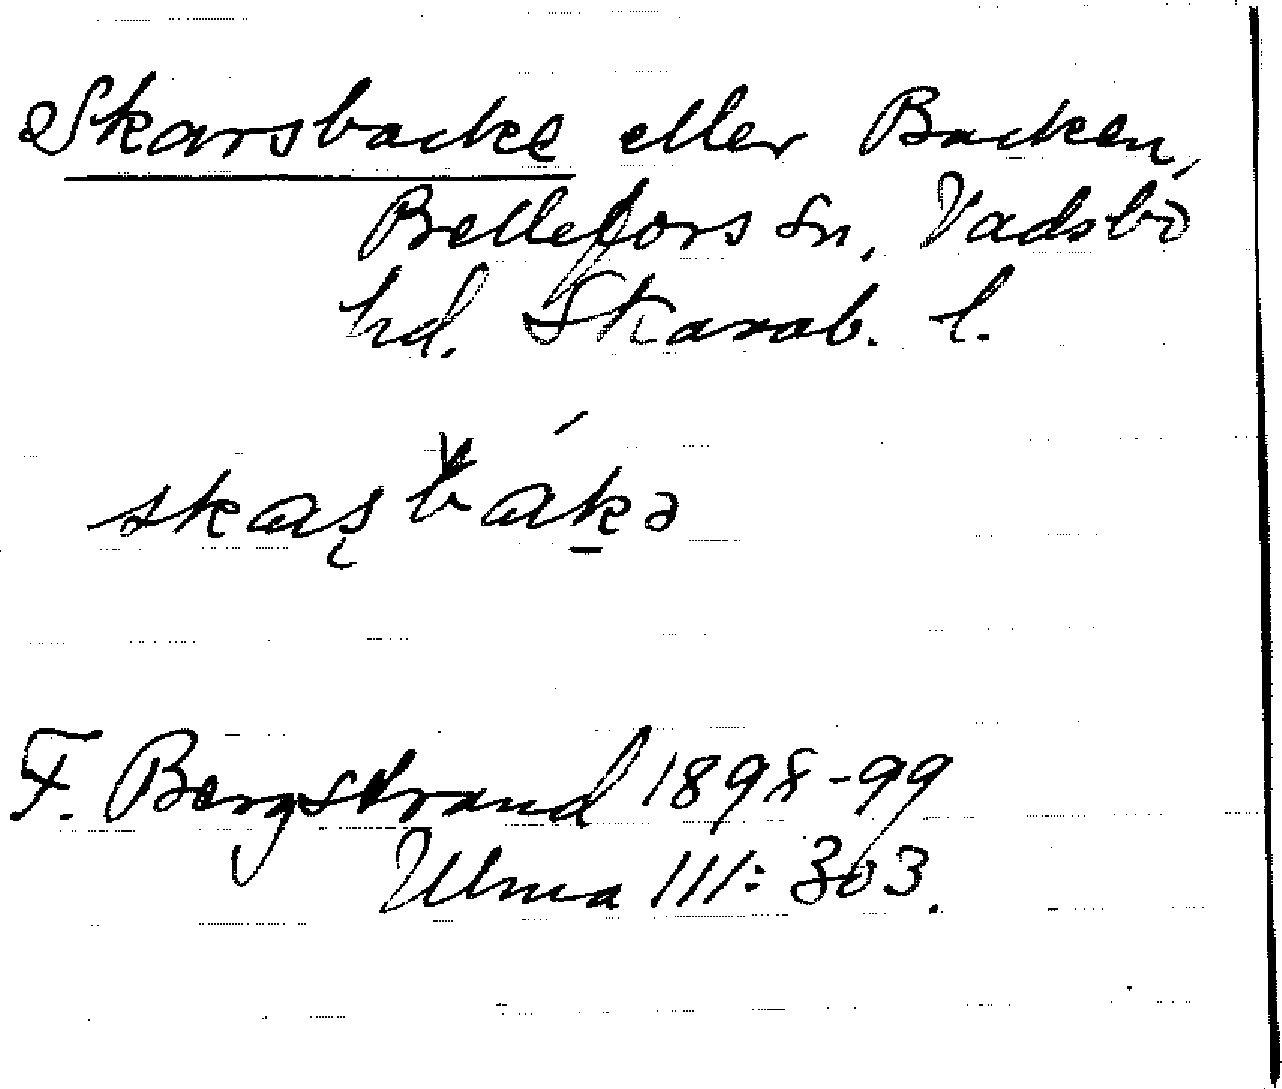 Skarsbacke eller Backen,
Bellefors sn, Vadsbo
hd. Skarab. l.
F. Bergstrand 1898-99
Ulma 111: 303.